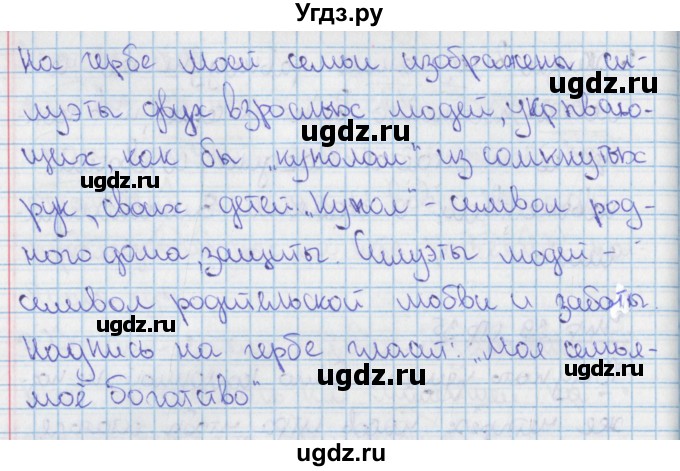 Угдз.ру
На гербе моей семьи изображены си-
луэты двух взрослых людей, укрываю-
щих, как бы „куполом" из сомкнутых
ugdz.ru ugdz.ru
рук, своих детей. „Купол" - символ род-
ugdz.ru
ного дома, защиты. Силуэты людей -
ugdz.ru
символ родительской любви и заботы.
ugdz.ru ugdz.ru
Надпись на гербе гласит: „Моя семья-
ugdz.ru
моё богатство"
ugdz.ru
ugdz.ru